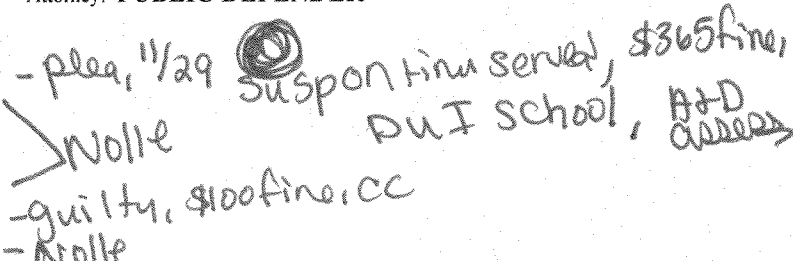 Attorney: PUBLIC DEFENDER
- plea, 11/29 suspon time served, $365 fine,
DUI school, A+D
assess
Nolle
- guilty, $100 fine, CC
- Nolle